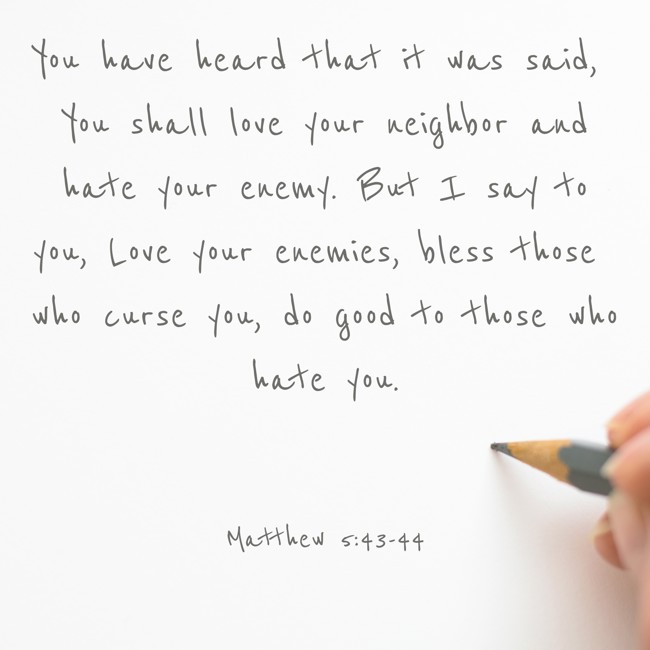 You have heard that it was said,
You shall love your neighbor and
hate your enemy. But I say to
you, Love your enemies, bless those
who curse you, do good to those who
hate you.
Matthew 5:43-44